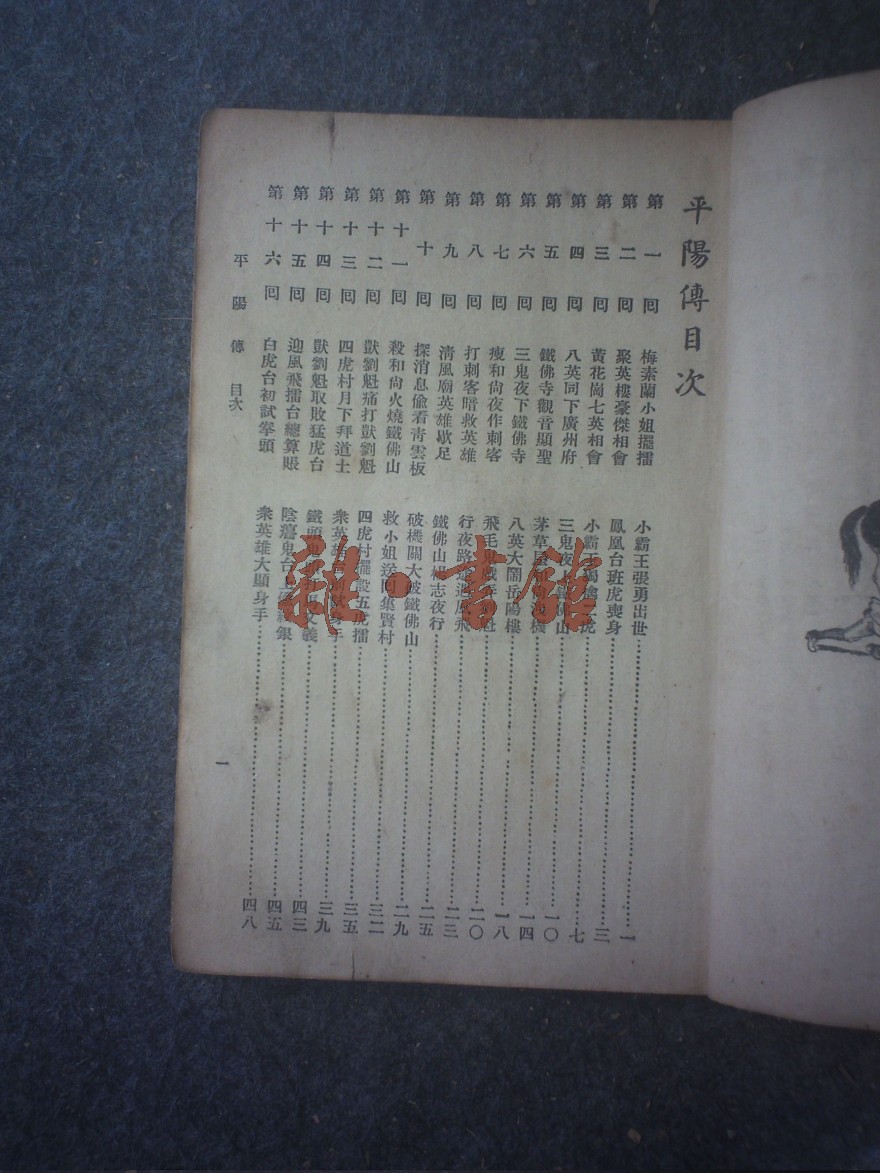 平陽傳目次
第一囘 梅素蘭小姐擺擂 小霸王張勇出世 一
第二囘 聚英樓豪傑相會 鳳凰台班虎喪身 三
第三囘 黃花崗七英相會 小霸王 七
第四囘 八英同下廣州府 三鬼夜 山 一〇
第五囘 鐵佛寺觀音顯聖 茅草 機 一四
第六囘 三鬼夜下鐵佛寺 八英大鬧岳陽樓 一八
第七囘 瘦和尙夜作刺客 飛毛 二〇
第八囘 打刺客暗救英雄 行夜路 飛 二三
第九囘 淸風廟英雄歇足 鐵佛山楊志夜行 二五
第十囘 探消息偷看靑雲板 破機關大破鐵佛山 二九
第十一囘 殺和尙火燒鐵佛山 救小姐送囘集賢村 三二
第十二囘 獃劉魁痛打獃劉魁 四虎村擺設五虎擂 三五
第十三囘 四虎村月下拜道士 衆英雄 身手 三九
第十四囘 獃劉魁取敗猛虎台 鐵頭 義 四三
第十五囘 迎風飛擂台總算賬 陰 鬼台上 銀 四五
第十六囘 白虎台初試拳頭 衆英雄大顯身手 四八
平陽傳 目次
一
雜·書館